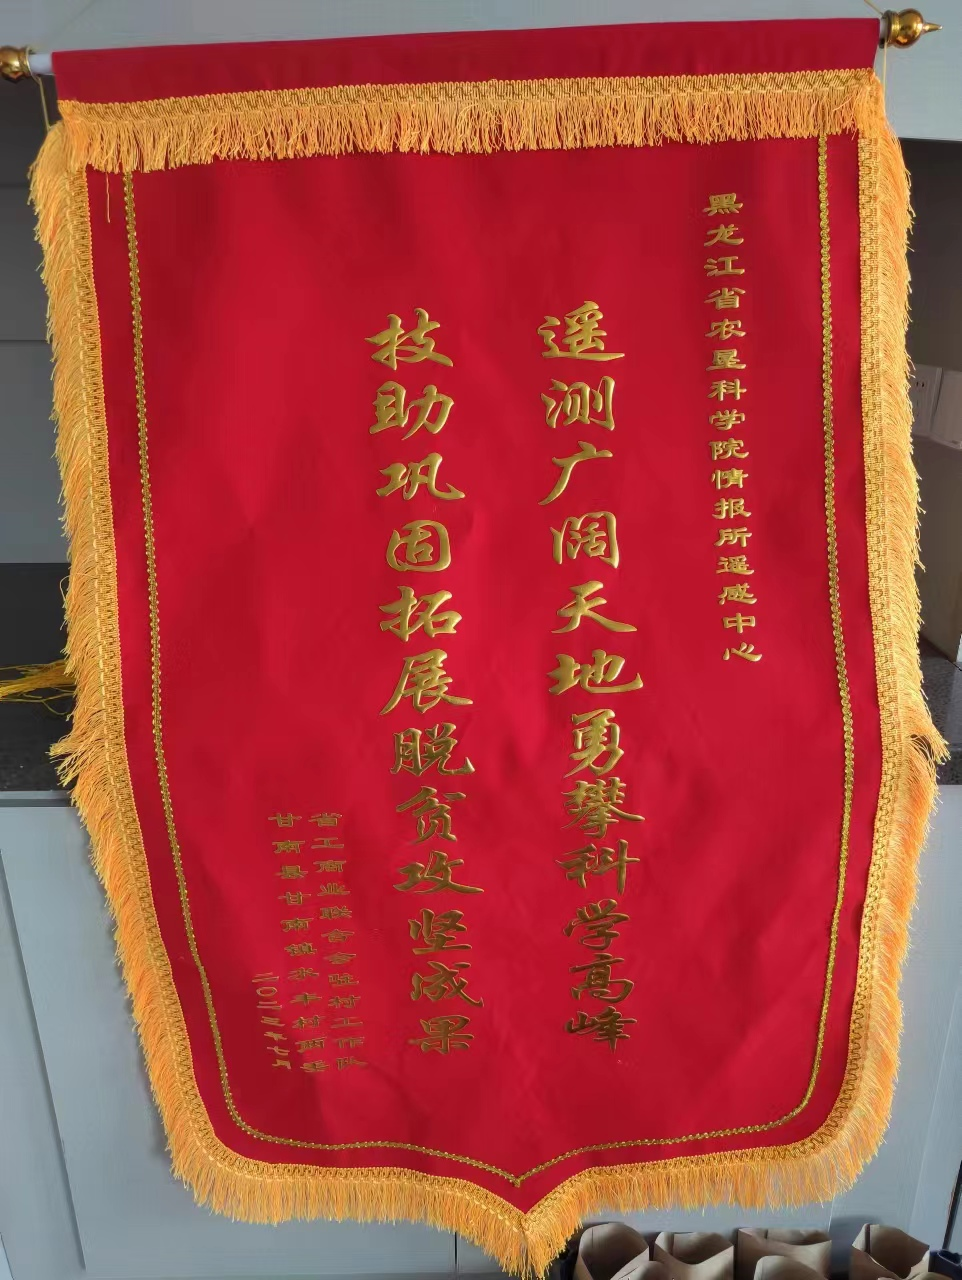 黑龙江省农垦科学院情报所遥感中心
遥测广阔天地勇攀科学高峰
技助巩固拓展脱贫攻坚成果
省工商业联合会驻村工作队
甘南县甘南镇水丰村两委
二〇二三年七月